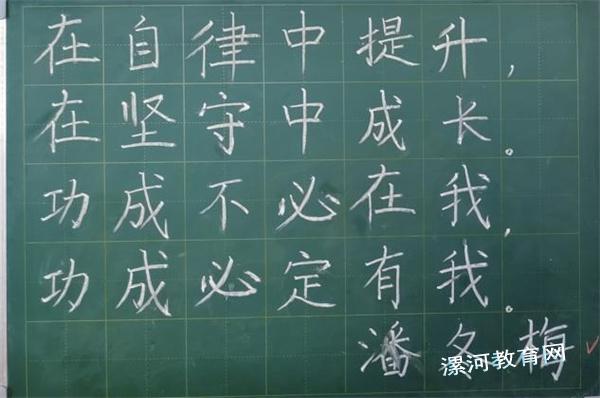 在自律中提升,
在坚守中成长。
功成不必在我,
功成必定有我。
潘冬梅
漯河教育网